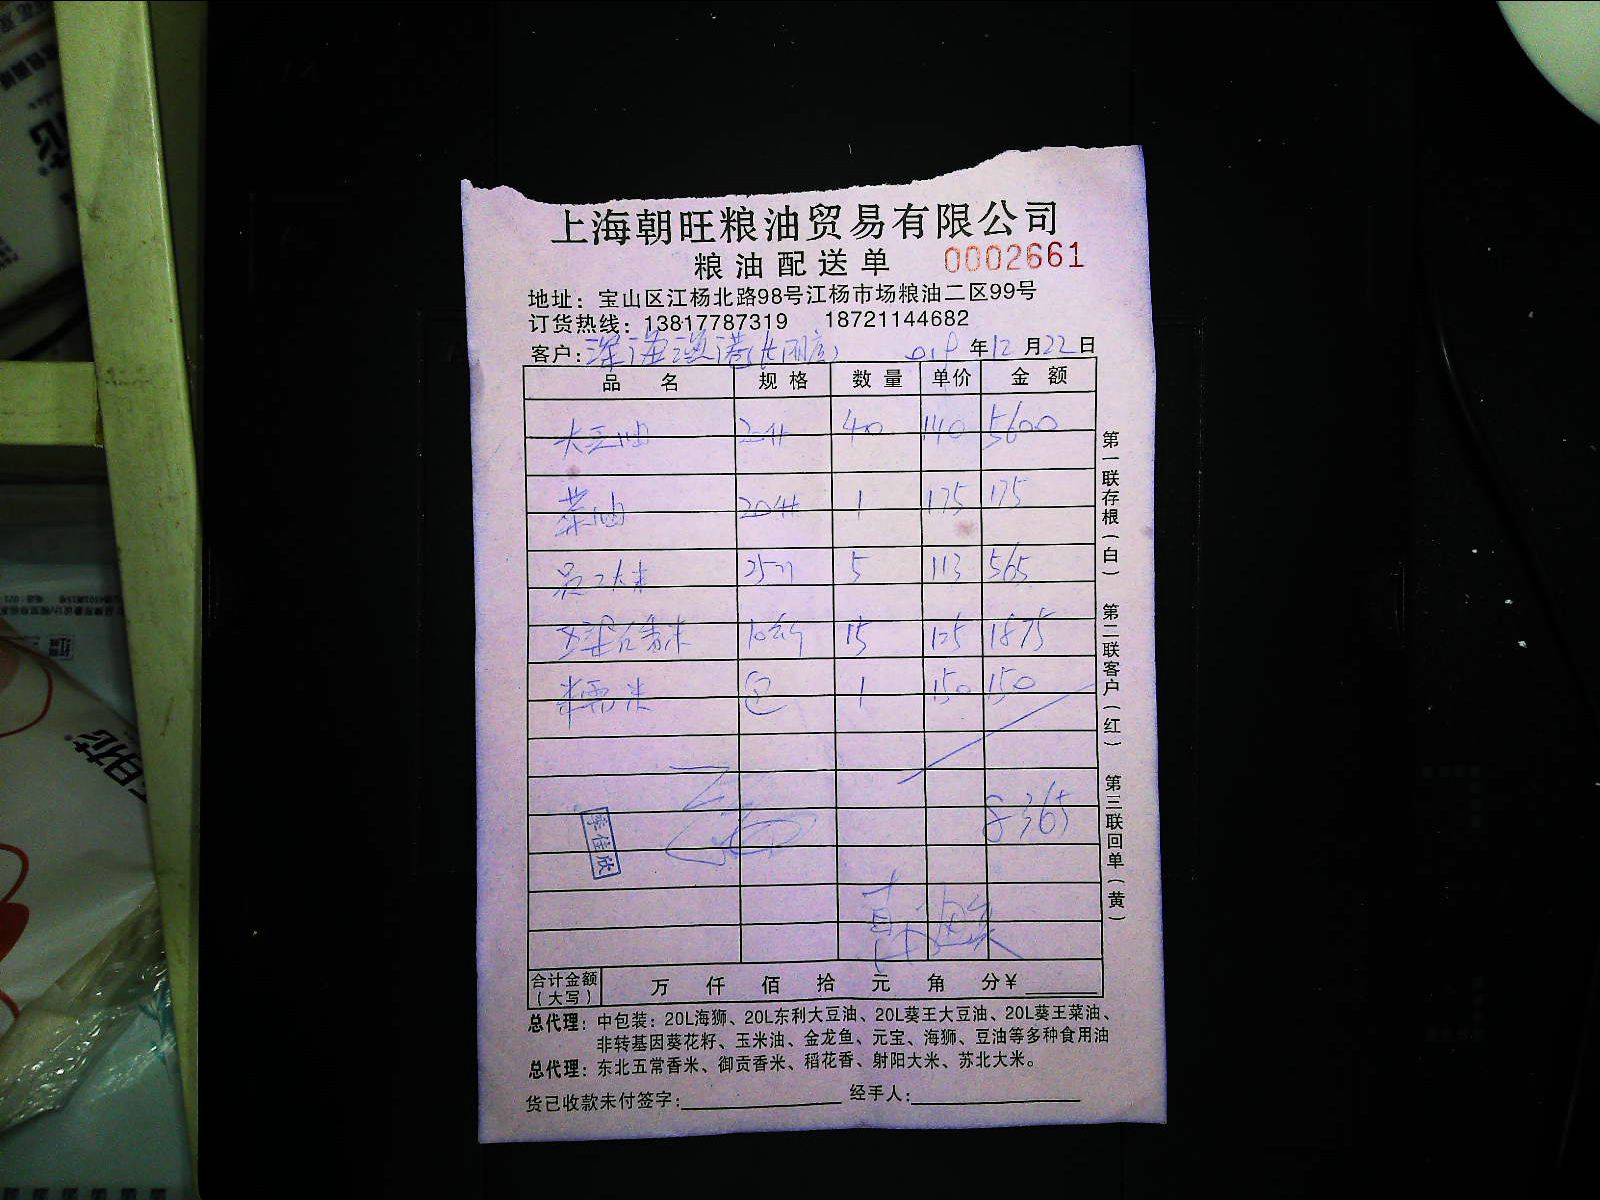 上海朝旺粮油贸易有限公司
粮油配送单 0002661
地址：宝山区江杨北路98号江杨市场粮油二区99号
订货热线：13817787319 18721144682
客户：深海渔港 年12月22日
品 名 规 格 数 量 单价 金 额
大豆油 20升 40 140 5600
菜油 20升 1 175 175
大米 25 5 113 565
香米 10 15 125 1875
糯米 包 1 150 150
8365
李佳欣
合计金额（大写） 万 仟 佰 拾 元 角 分￥
总代理：中包装：20L海狮、20L东利大豆油、20L葵王大豆油、20L葵王菜油、
非转基因葵花籽、玉米油、金龙鱼、元宝、海狮、豆油等多种食用油
总代理：东北五常香米、御贡香米、稻花香、射阳大米、苏北大米。
货已收款未付签字： 经手人：
第一联存根（白） 第二联客户（红） 第三联回单（黄）